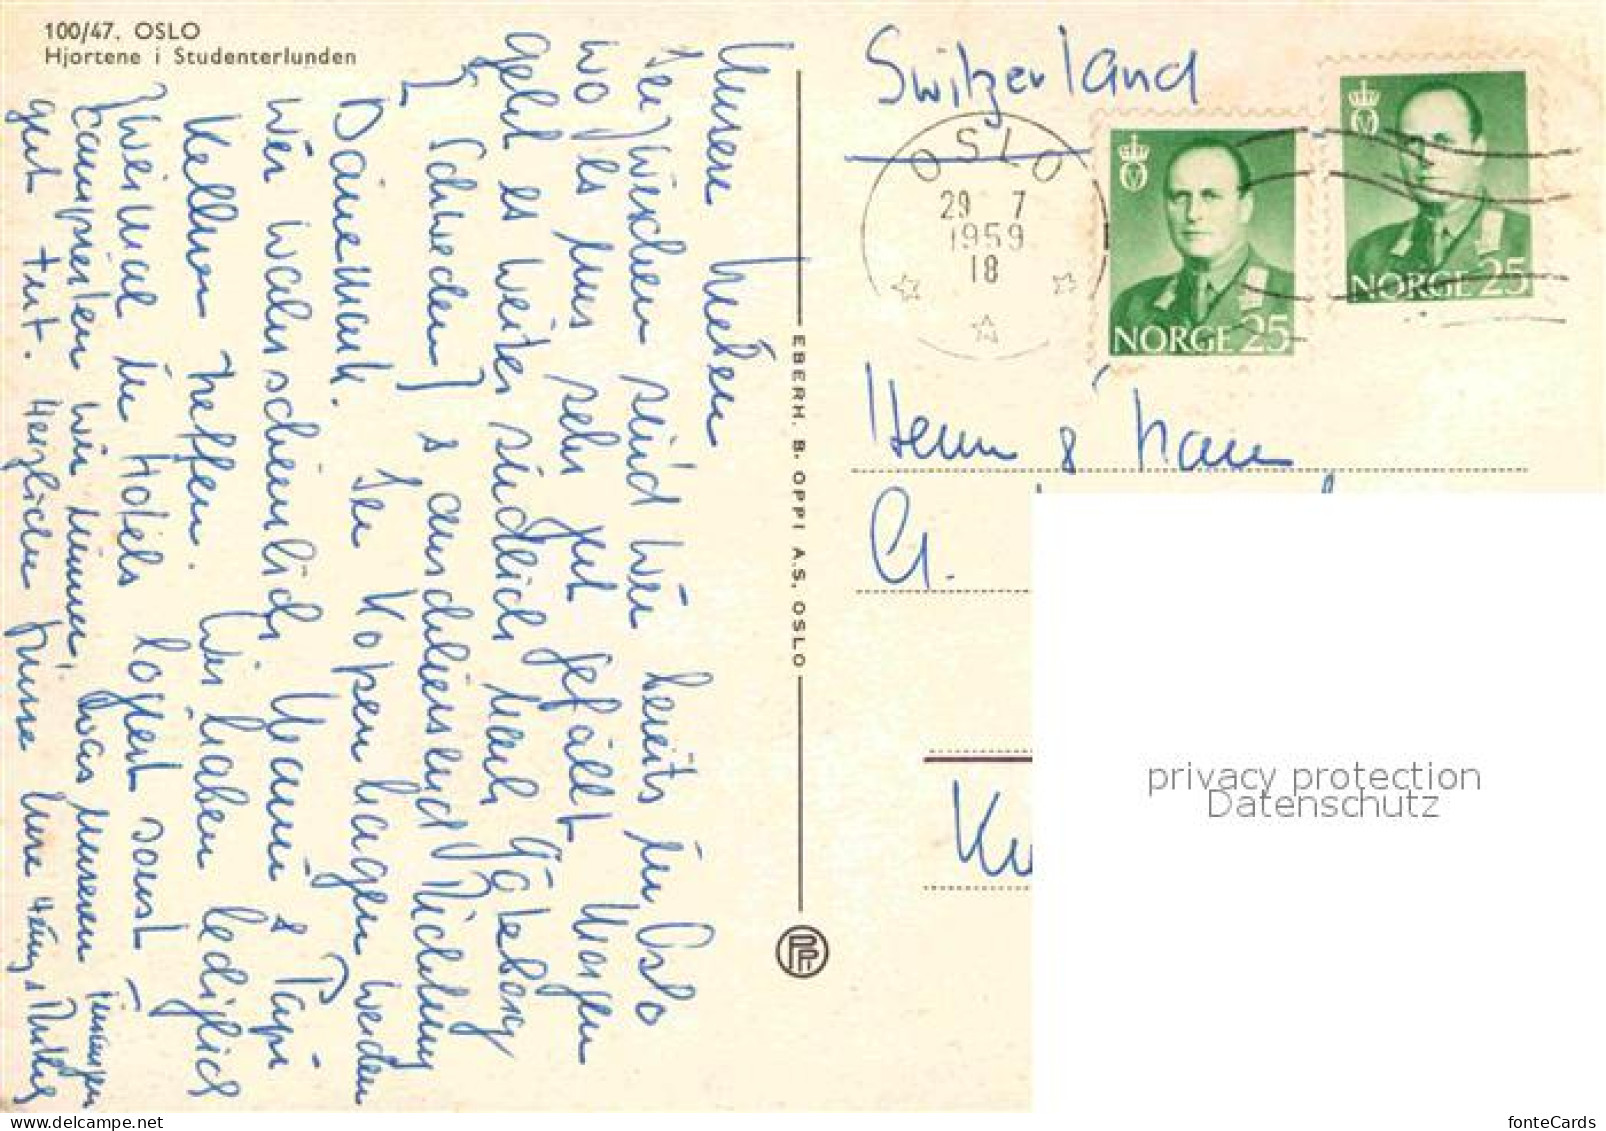 100/47. OSLO
Hjortene i Studenterlunden
Unsere Lieben
Seit Wochen sind wir bereits in Oslo
wo es uns sehr gut gefällt. Morgen
geht es weiter südlich nach Göteborg
[Schweden] & anschliessend Richtung
Dänemark. In Kopenhagen werden
wir wahrscheinlich Mami & Papi
Keller treffen. Wir haben lediglich
zweimal in Hotels logiert sonst
campierten wir immer, was unseren
gut tut. Herzliche Grüsse
EBERH. B. OPPI A.S. OSLO
PPI
Switzerland
OSLO
29 7
1959
18
NORGE 25
NORGE 25
Herrn & Frau
G.
privacy protection
Datenschutz
www.delcampe.net
fonteCards